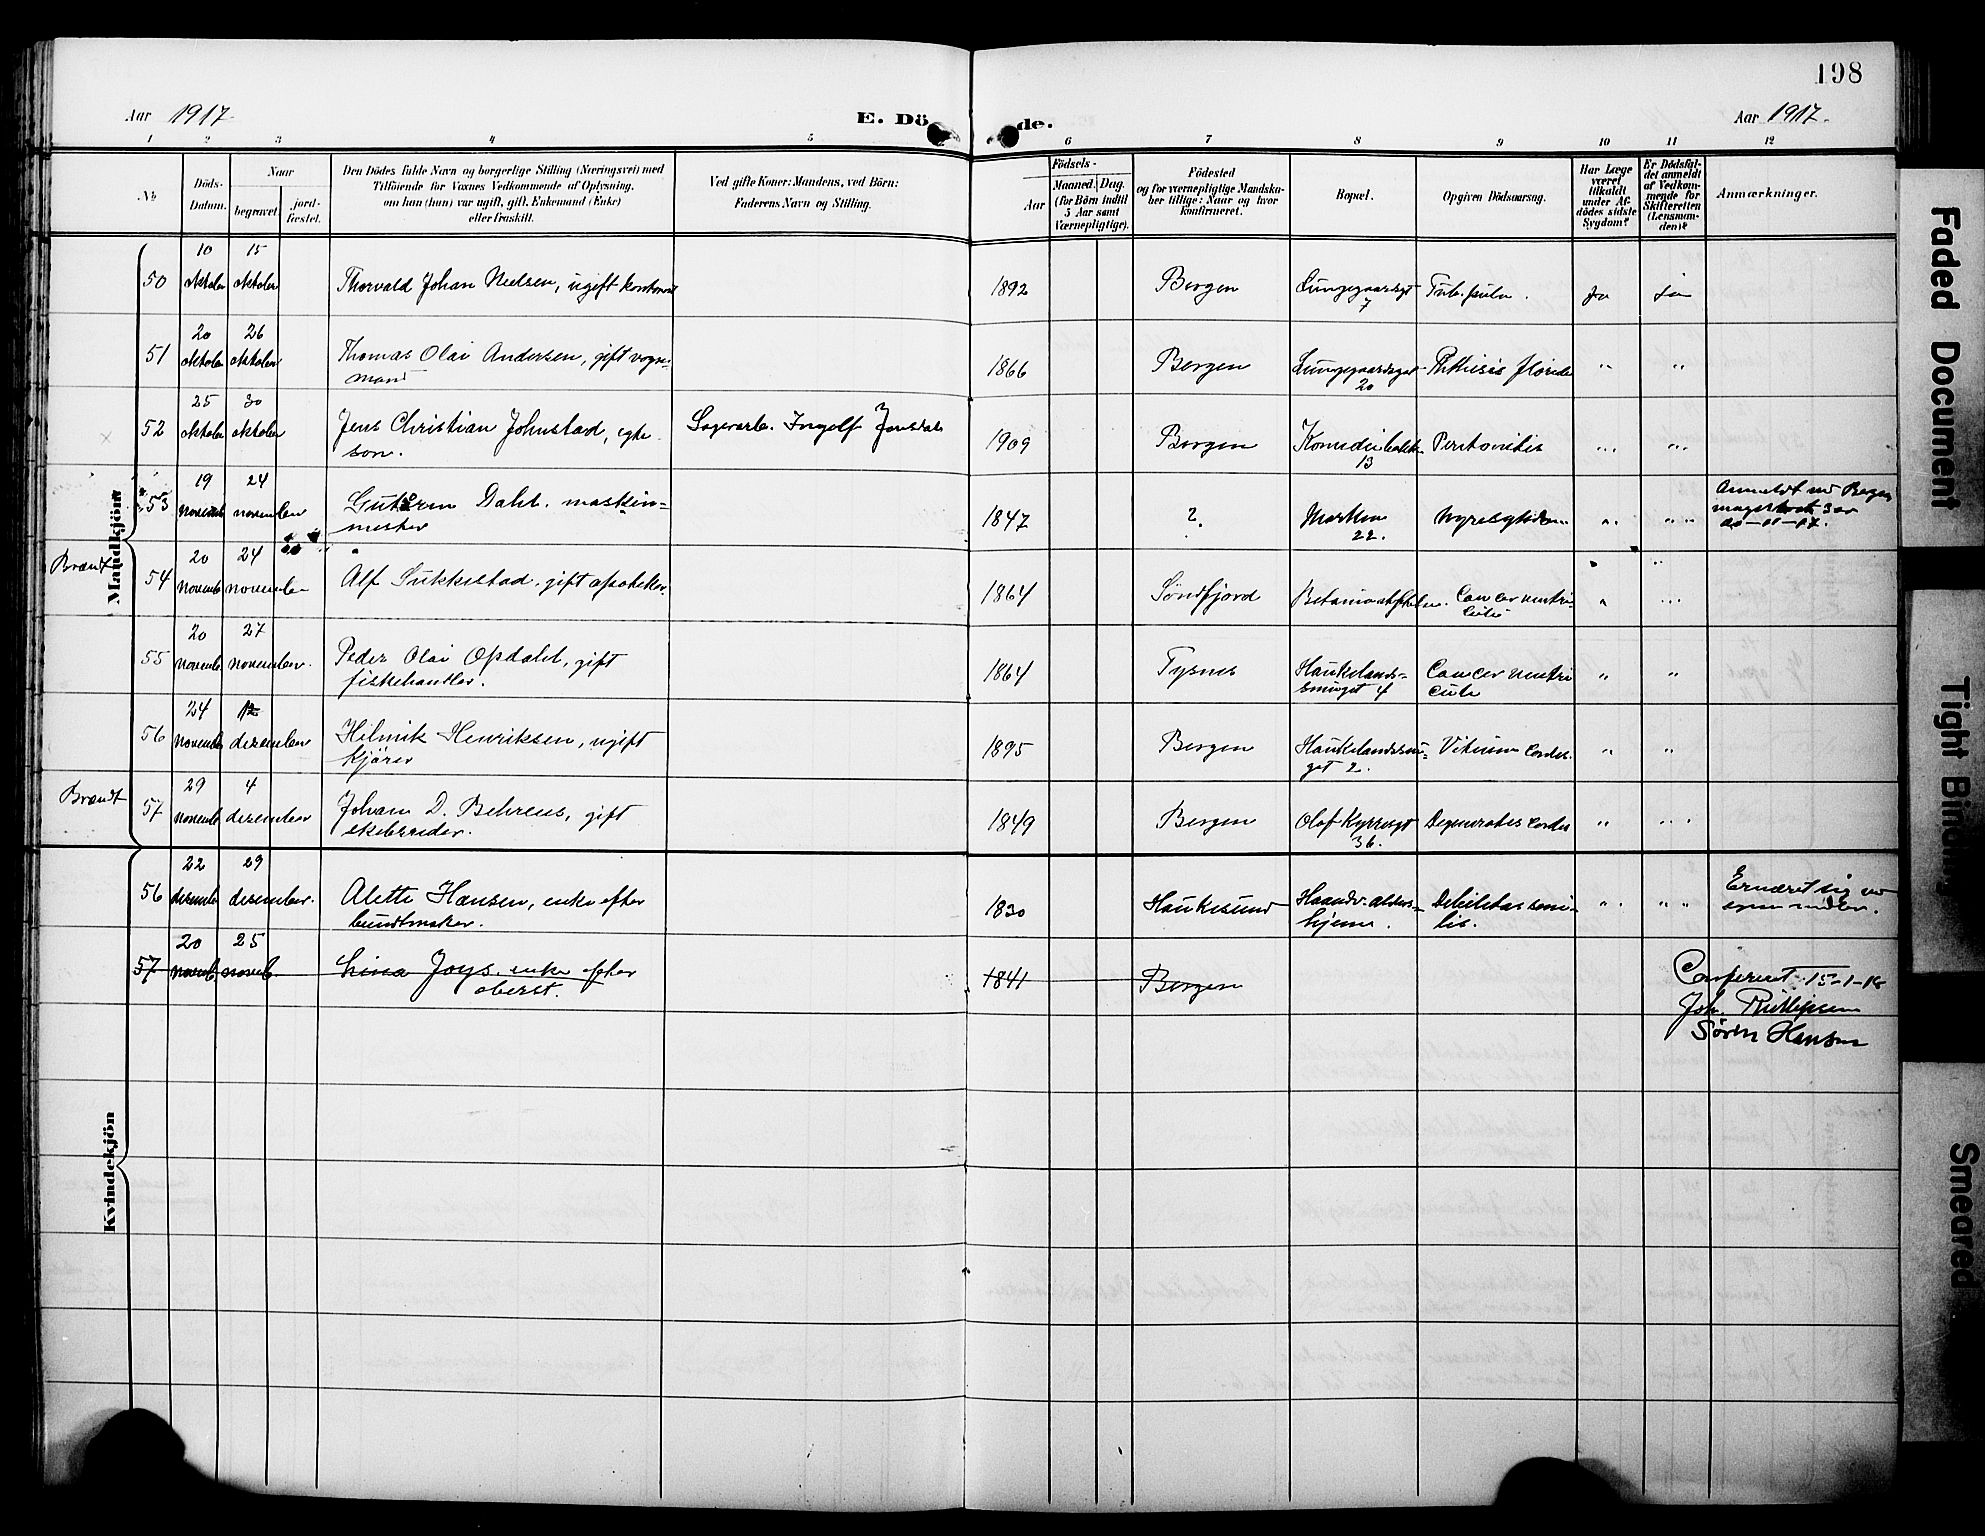 198
Aar 1917
E. Dö de.
Aar 1917.
1 2 3 4 5 6 7 8 9 10 11 12
No
Döds-Datum.
Naar
begravet.
jord-fæstet.
Den Dödes fulde Navn og borgerlige Stilling (Næringsvei) med
Tilföiende for Voxnes Vedkommende af Oplysning,
om han (hun) var ugift, gift, Enkemand (Enke)
eller fraskilt.
Ved gifte Koner: Mandens, ved Börn:
Faderens Navn og Stilling.
Födsels-
Aar
Maaned. Dag.
(for Börn indtil
5 Aar samt
Værnepligtige).
Födested
og for værnepligtige Mandska-
ber tillige: Naar og hvor
konfirmeret.
Bopæl.
Opgiven Dödsaarsag.
Har Læge
været
tilkaldt
under Af-
dödes sidste
Sygdom?
Er Dödsfal-
det anmeldt
af Vedkom-
mende for
Skifteretten
(Lensman-
den)?
Anmærkninger.
Mandkjön
50 10 oktober 15 oktober Thorvald Johan Nielsen, ugift kontorist 1892 Bergen Lungegaardsgt 7 Tub. pulm. ja ja
51 20 oktober 26 oktober Thomas Olai Andersen, gift vogn-
mand 1866 Bergen Lungegaardsgt 20 Phthisis florida " "
52 25 oktober 30 oktober Jens Christian Johnstad, egte
søn. Lagerarb. Ingolf Jonstad 1909 Bergen Komediebakk. 13 Peritonitis " "
53 19 novemb. 24 november Guttorm Dahl, maskin-
mester 1847 ? Marken 22. Nyresygdom " " Anmeldt ved Bergen
20-11-17.
Brandt
54 20 novemb. 24 november Alf Sukkestad, gift apoteker. 1864 Søndfjord Betania Cancer ventri-
culi " "
55 20 novemb. 27 november. Peder Olai Opdahl, gift
fiskehandler. 1864 Tysnes Haukelands-
smuget 4 Cancer ventri
culi " "
56 24 novemb. 12 dezember Hilmik Henriksen, ugift
kjører 1895 Bergen Haukelandssmu-
get 2. Vitium cordis. " "
Brandt
57 29 novemb. 4 dezember Johan D. Behrens, gift
skibsreder. 1849 Bergen Olaf Kyrresgt 36. Degeneratio cordis " "
Kvindekjön
56 22 dezemb. 29 dezember. Alette Hansen, enke efter
bundtmaker. 1830 Haukesund Haandv. alders-
hjem. Debilitas seni-
lis. " " Ernæret sig ved
egne midler.
57 20 novemb. 25 novemb. Lina Joys, enke efter
oberst. 1841 Bergen
Confereret 15-1-18
Joh.
Søren Hansen
Faded Document
Tight Binding
Smeared